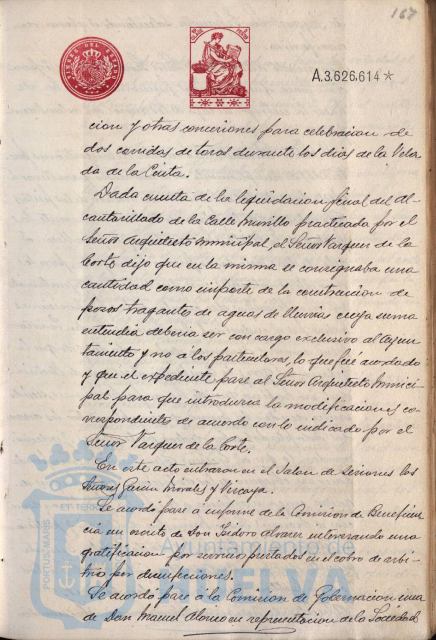 167
TIMBRE DEL ESTADO
A.3.626.614
cion y otras concesiones para celebracion de
dos corridas de toros durante los dias de la Vela-
da de la Cinta.
Dada cuenta de la liquidacion final del Al-
cantarillado de la Calle Murillo practicada por el
Señor Arquitecto Municipal, el Señor Vazquez de la
Corte dijo que en la misma se consignaba una
cantidad como importe de la construccion de
pozos tragantes de aguas de lluvias cuya suma
entendia deberia ser con cargo exclusivo al Ayun-
tamiento y no a los particulares, lo que fué acordado
y que el expediente pase al Señor Arquitecto Munici-
pal para que introduzca la modificaciones co-
rrespondiente de acuerdo con lo indicado por el
Señor Vazquez de la Corte.
En este acto entraron en el Salon de sesiones los
Señores Garcia Morales y Vizcaya.
Se acordó pase a informe de la Comision de Beneficen-
cia un escrito de Don Isidoro Alvarez interesando una
gratificacion por servicio prestados en el cobro de arbi-
trio por defunciones.
Se acordó pase a la Comision de Gobernacion una
de Don Manuel Alonso en representacion de la Sociedad
PORTUS MARIS ET TERRAE
Ayuntamiento de
HUELVA